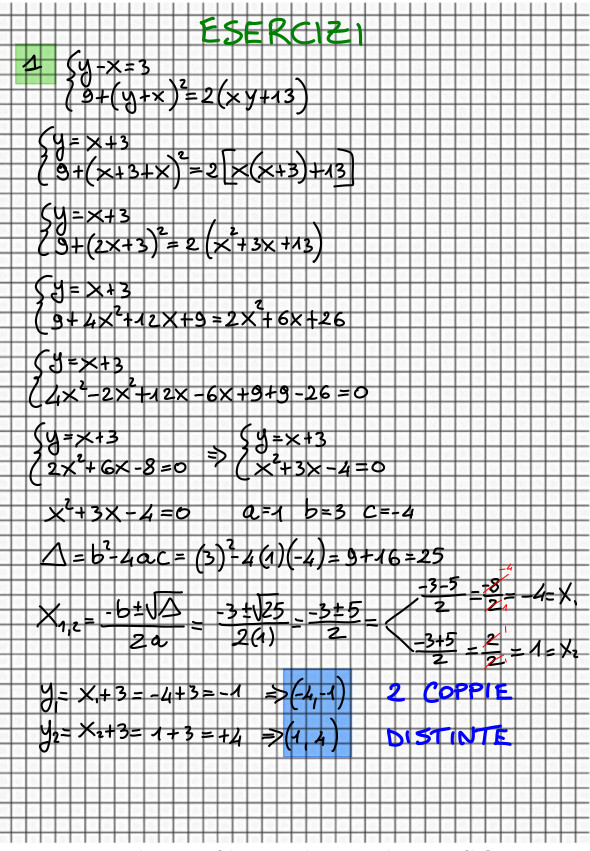 ESERCIZI
1 { y-x=3
9+(y+x)²=2(xy+13)
{ y=x+3
9+(x+3+x)²=2[x(x+3)+13]
{ y=x+3
9+(2x+3)²=2(x²+3x+13)
{ y=x+3
9+4x²+12x+9=2x²+6x+26
{ y=x+3
4x²-2x²+12x-6x+9+9-26=0
{ y=x+3 ⇒ { y=x+3
2x²+6x-8=0 x²+3x-4=0
x²+3x-4=0 a=1 b=3 c=-4
Δ=b²-4ac=(3)²-4(1)(-4)=9+16=25
x₁,₂= (-b±√Δ)/2a = (-3±√25)/2(1) = (-3±5)/2 =
(-3-5)/2 = -8/2 = -4 = x₁ -4 1
(-3+5)/2 = 2/2 = 1 = x₂ 1
y₁= x₁+3=-4+3=-1 ⇒(-4,-1) 2 COPPIE
y₂= x₂+3=1+3=+4 ⇒(1,4) DISTINTE